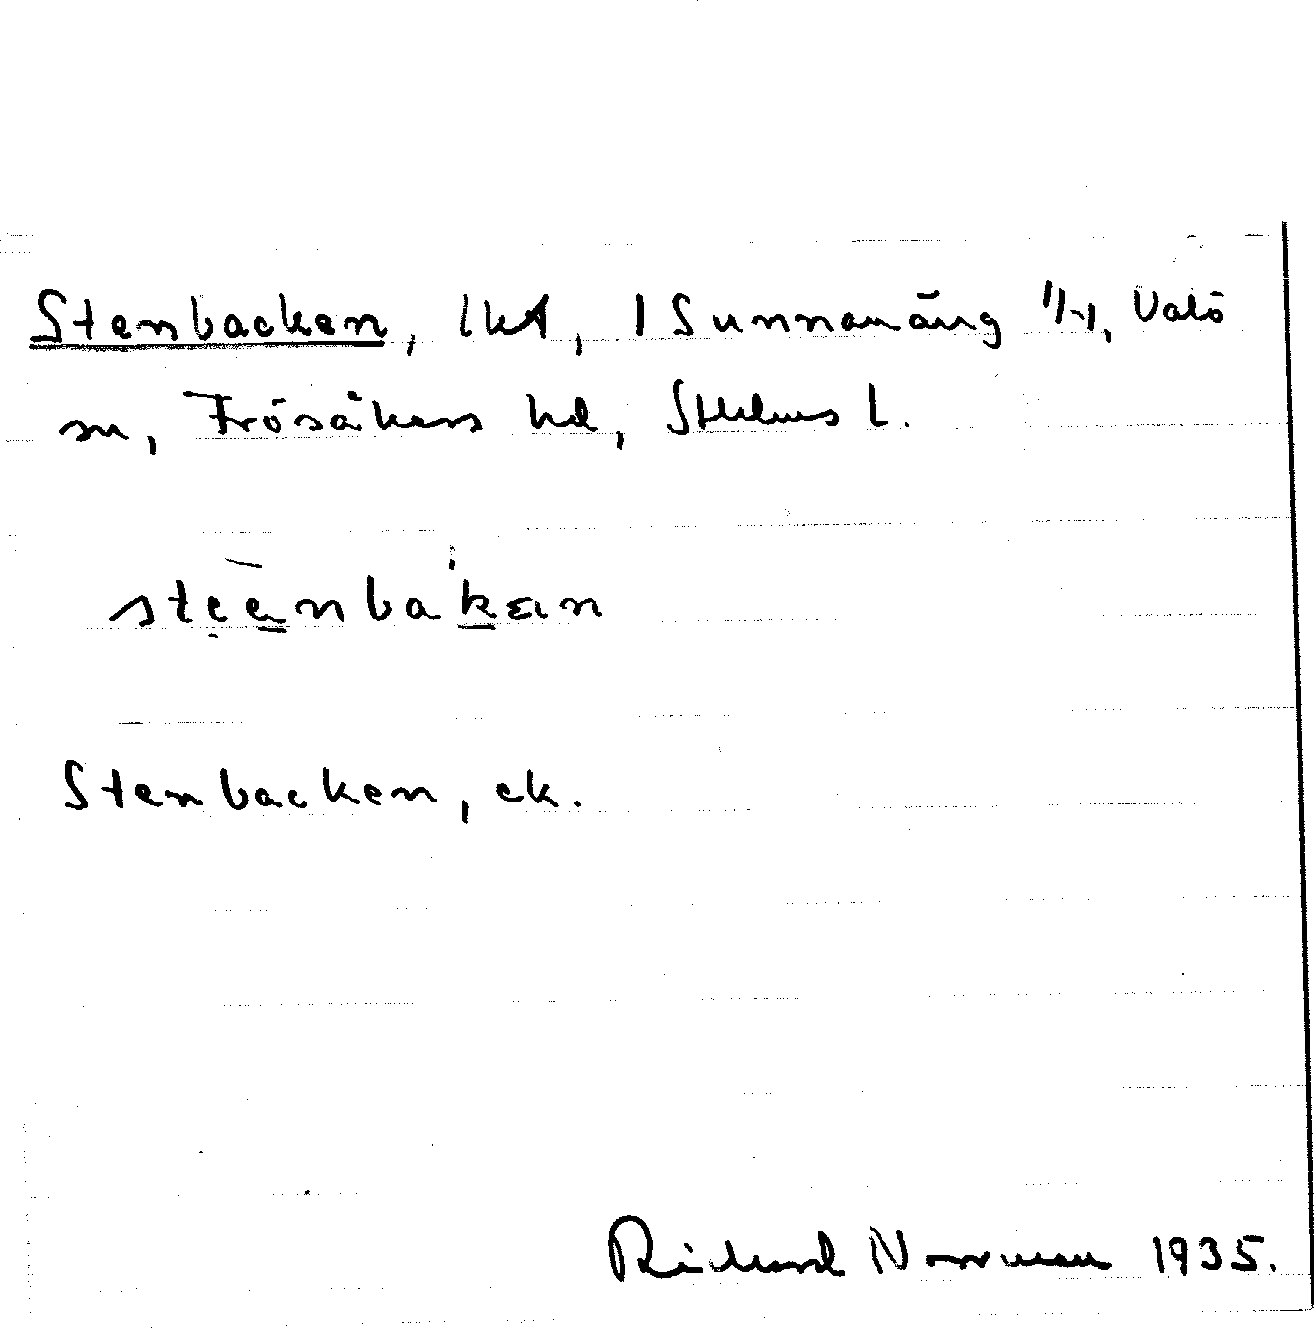 Stenbacken, lht, 1 Sunnanäng 1/1, Valö
sn, Frösåkers hd, Sthlms l.
steenbakan
Stenbacken, ek.
Richard Norrman 1935.